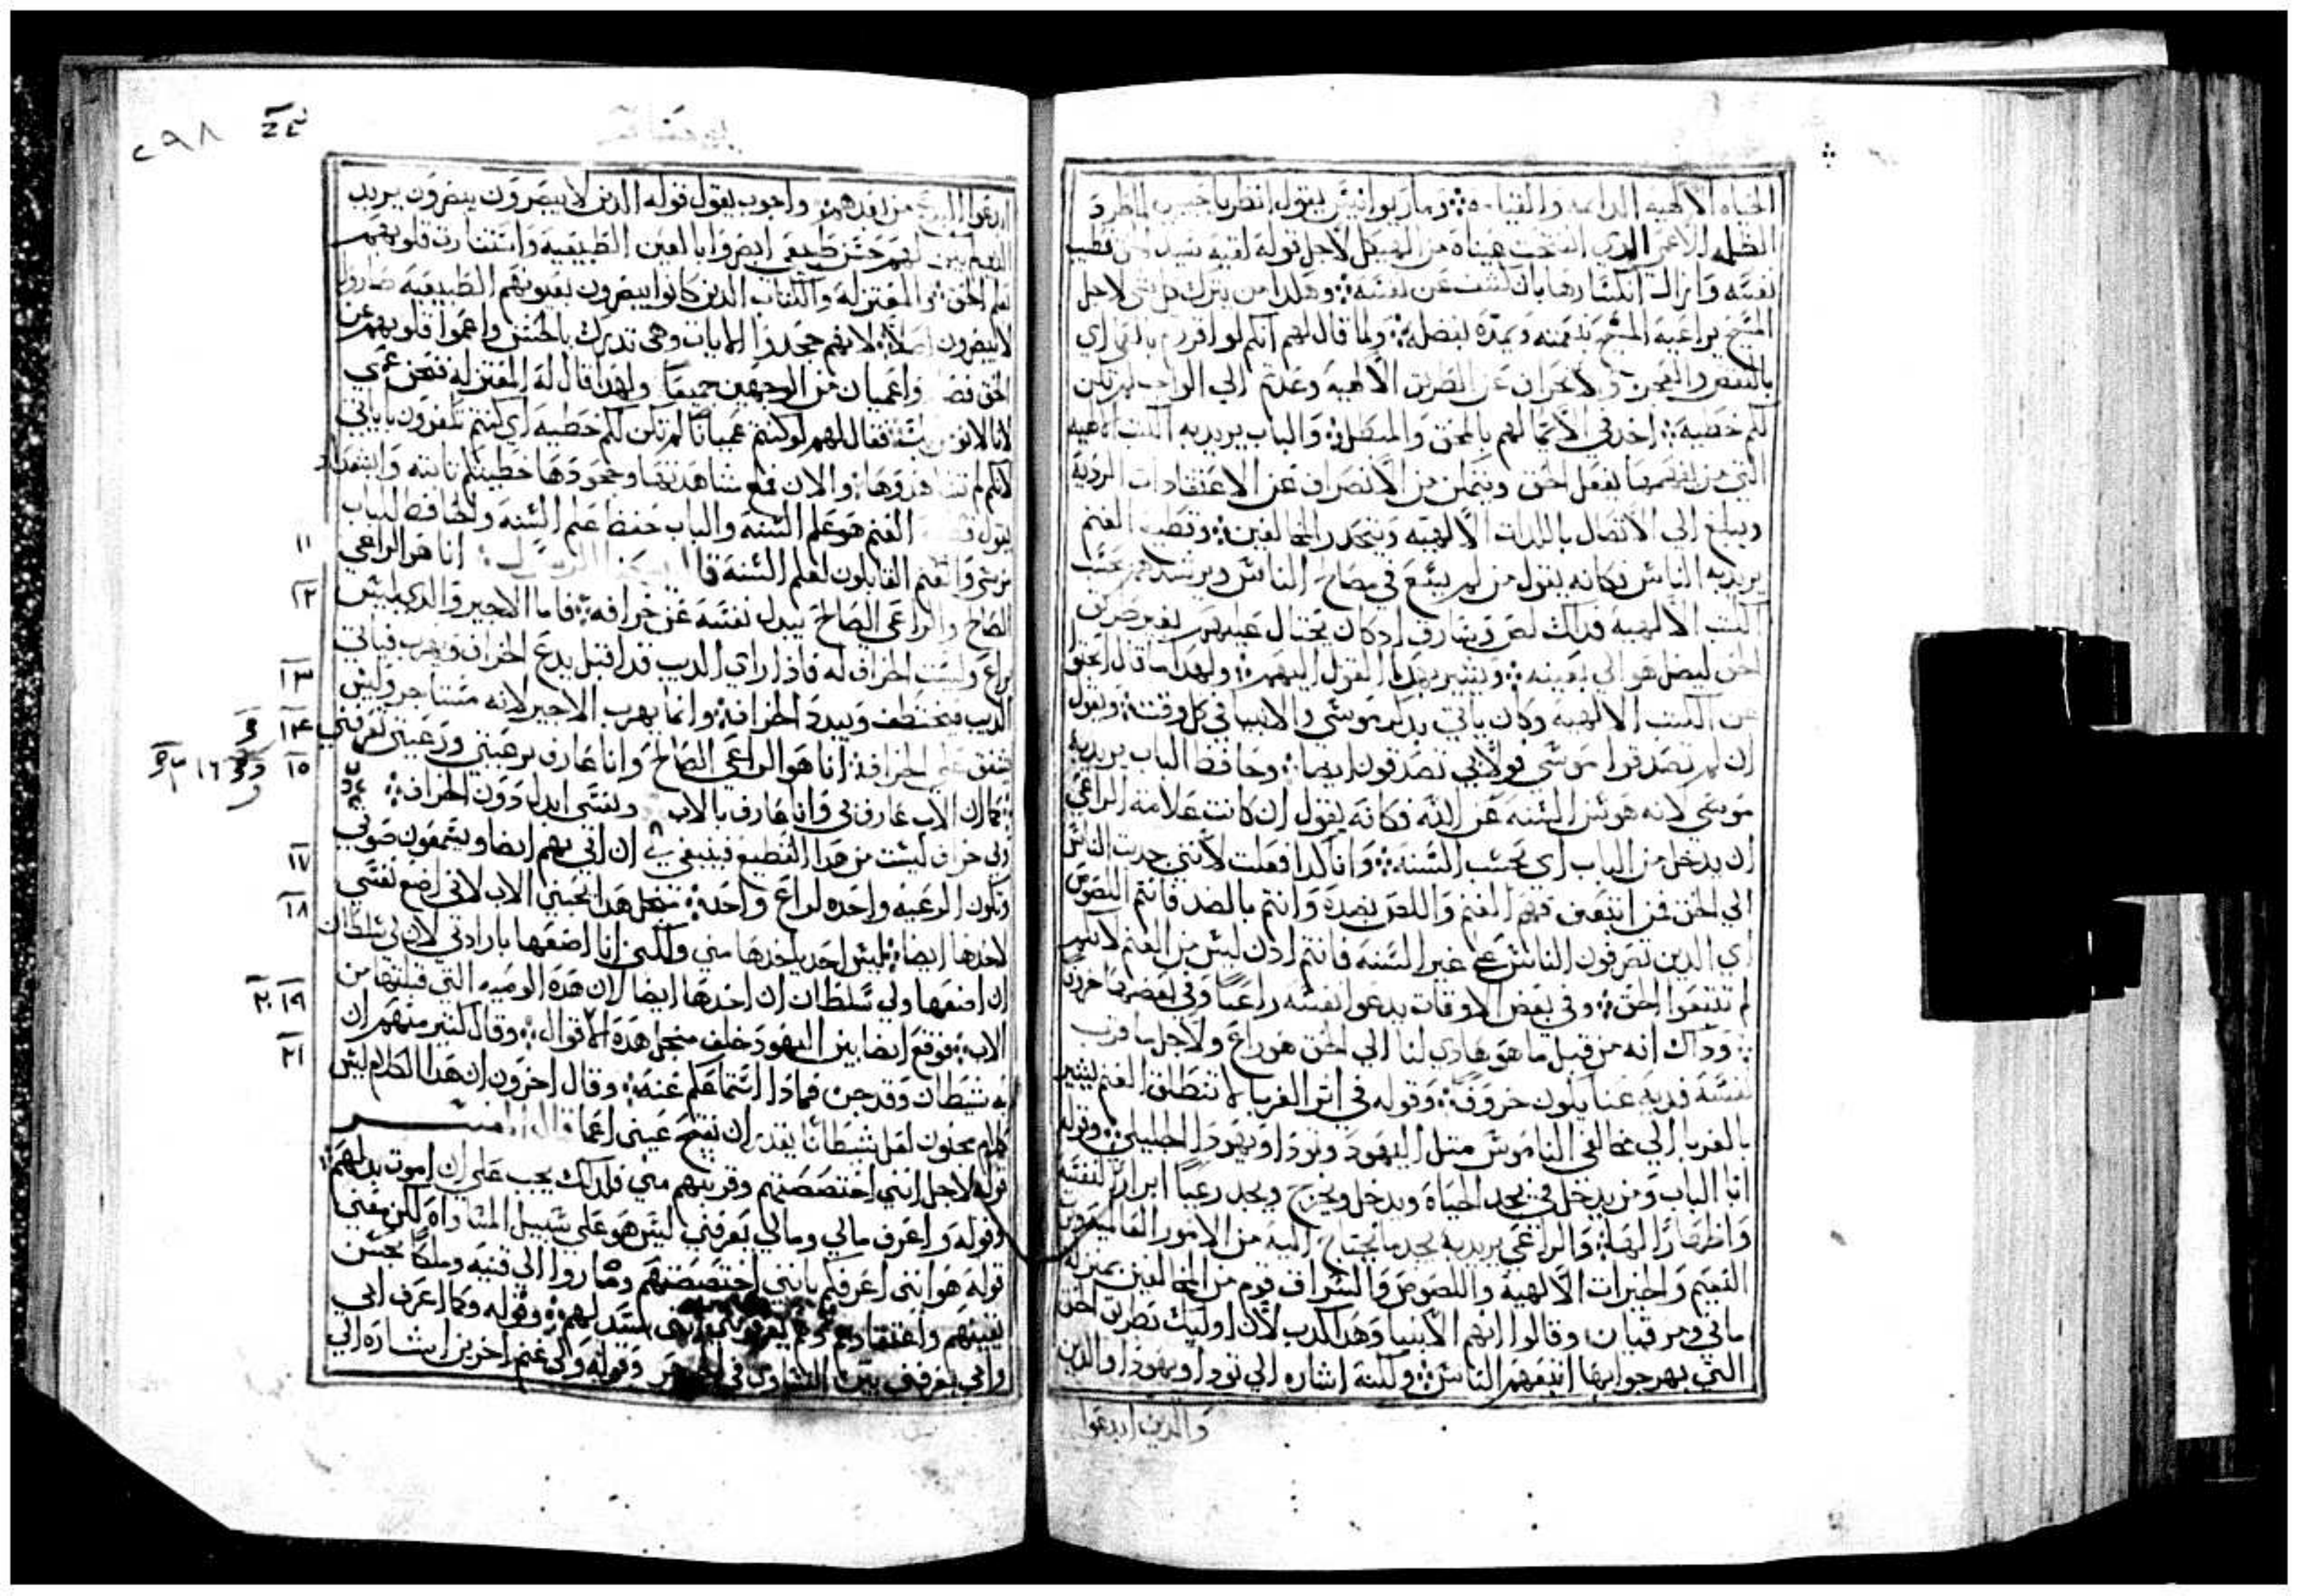 الحياه الالهيه الدايمه والقيامه ومار يوانيس يقول انظر يا حبيبي ما اظرف
الاعمى الذي انفتحت عيناه من الهيكل لاجل قوله لقيه
نفسه وازال انكسارها بان كشف عن نفسه وهكدا من يترك كل شي لاجل
المسيح يراعيه المسيح بنعمته ويمده بفضله ولما قال لهم انكم لو اقررتم بالعمى اي
بالنقص والعجز والانحراف عن الطريق الالاهيه وعدتم الي الواجب لم تكن
لكم خطيه اخد في الاعما لهم بالمحق والمبطل والباب يريد به الكتب الالاهيه
التي من يفعل الحق ويتمكن من الانصراف عن الاعتقادات الرديه
ويبلغ الي الاتصال باللدات الالهيه ويتحدر المخالفين وقطيع الغنم
يريد به الناس فكانه يقول من لم يسع في مصالح الناس ويرشدهم بحسب
الكتب الالهيه فداك لص وسارق اد كان يحتال عليهم بغير طريق
الحق ليصل هو الي بغيته ويشير بهدا القول اليهم ولهدا ما قال الحق
من الكتب الالهيه وكان ياتي بدكر موسى والانبيا في كل وقت ويقول
ان لم تصدقوا موسى فولا بي تصدقون ايضا وحافظ الباب يريد به
موسى لانه هو سن السنه عن الله فكانه يقول ان كانت علامة الراعي
ان يدخل من الباب اي بحسب السنه وانا كدا فعلت لانني جدبت الناس
الي الحق فمن اتبعني فهم الغنم واللص بضده وانتم بالضد فانتم اللصوص
اي الدين تصرفون الناس علي غير السنه فانتم ادن ليس من الغنم لانكم
لم تتبعوا الحق وفي بعض الاوقات يدعوا نفسه راعيا وفي بعضها خروفا
وداك انه من قبل ما هو هادي لنا الي الحق هو راع ولاجل ما قرب
نفسه فديه عنا يكون خروف وقوله في اثر الغربا لا تنطلق الغنم ليشير
بالغربا الي مخالفي الناموس متل اليهود وتودا ويهودا الجليلي وقوله
انا الباب ومن يدخل في يجد الحياه ويدخل ويخرج ويجد رعيا ابرار لنفسه
واظهارا لها والراعي يريد به يجد ما يحتاج اليه من الامور العالميه ومن
النعيم والخيرات الالهيه واللصوص والسراق قوم من المخالفين بمنزلة
ماني ومرقيان وقالوا انهم الانبيا وهدا كدب لان اوليك بطريق الحق
التي بهرجوا بها اتبعهم الناس ولكنه اشاره الي تودا ويهودا والدين
والدين ابدعوا
٢٩٨
من بعدهم واجوب بقول قوله الدين لا يبصرون يبصرون يريد
الدين ليس لهم حس طبيعي ابصروا بالعين الطبيعيه واستنارت قلوبهم
بعلم الحق والمعتزله والكتاب الدين كانوا يبصرون بعيونهم الطبيعيه صاروا
لا يبصرون اصلا لانهم جحدوا الايات وهي تدرك بالحس واعموا قلوبهم عن
الحق واعميان من الوجهين جميعا ولهدا قال له المعتزله فنحن عمي
لانا لا نومن بك فقال لهم لو كنتم عميانا لم تكن لكم خطيه اي كنتم تكفرون باياتي
لانكم لم تشاهدوها والان فمع مشاهدتها وجحودها خطيتكم ثابته
يقول الغنم هو علم السنه والباب حفظ علم السنه والحافظ للباب
موسى والغنم القابلون لعلم السنه قال انا هو الراعي
١١
الصالح والراعي الصالح يبدل نفسه عن خرافه فاما الاجير والدي ليس
١٢
براع وليست الخراف له فادا راي الديب قد اقبل يدع الخراف ويهرب فياتي
الديب فيختطف ويبدد الخراف وانما يهرب الاجير لانه مستاجر وليس
١٣
يشفق علي الخراف انا هو الراعي الصالح وانا عارف برعيتي ورعيتي تعرفني
١٤
كما ان الاب عارف بي وانا عارف بالاب ونفسي ابدل دون الخراف
١٥
١٦
ولي خراف ليست من هدا القطيع فينبغي لي ان اتي بهم ايضا ويسمعون صوتي
وتكون الرعيه واحده لراع واحد من اجل هدا يحبني الاب لاني اضع نفسي
١٧
لاخدها ايضا ليس احد ياخدها مني ولكني انا اضعها بارادتي لان لي سلطان
١٨
ان اضعها ولي سلطان ان اخدها ايضا لان هده الوصيه التي قبلتها من
الاب فوقع ايضا بين اليهود خلف من اجل هده الاقوال وقال كثير منهم ان
١٩ ٢٠
به شيطان وقد جن فمادا استماعكم عنه وقال اخرون ان هدا الكلام ليس
٢١
كلام مجنون لعل شيطانا يقدر ان يفتح عيني اعما
قوله لاجل انني اختصصتهم وقربتهم مني فلدلك يجب علي ان اموت بدلهم
وقوله واعرف مالي ومالي يعرفني ليس هو علي سبيل المساواه لكن معني
قوله هو انني اعرفكم بانني اختصصتهم وصاروا الي قنيه وملكا بحسن
نيتهم واعتقادهم وهم يعرفوني انني سيد لهم وقوله وكما اعرف ابي
وابي يعرفني بين التساوي في الجوهر وقوله ولي غنم اخرين اشاره الي